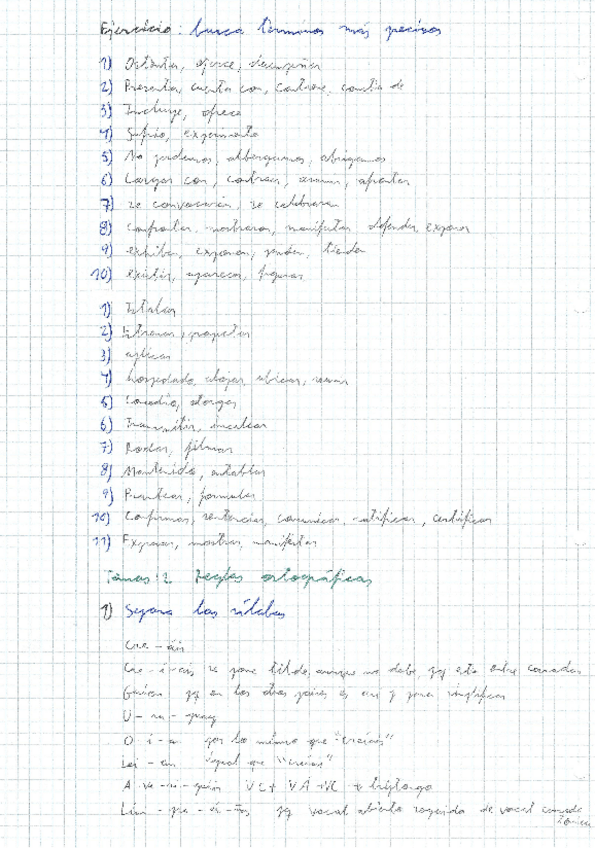 Ejercicio: busca términos más precisos
1) Ostenta, ejerce, desempeña
2) Presenta, cuenta con, contiene, consta de
3) Incluye, ofrece
4) Sufrió, experimentó
5) No perdemos, albergamos, abrigamos
6) Cargar con, contraer, asumir, afrontar
7) se convocarán, se celebrarán
8) confrontar, mostraron, manifestar defender, exponer
9) exhibir, exponer, vender, tienda
10) existir, aparecer, figurar
1) Instalar
2) Estrenar, proyectar
3) aplicar
4) hospedado, alojar, ubicar,
5) Concedió, otorgar
6) Transmitir, inculcar
7) Rodar, filmar
8) Mantenido, entablar
9) formular
10) Confirmar, sentenciar, comunicar, ratificar, certificar
11) Expresar, mostrar, manifestar
Tema 2. Reglas ortográficas
1) Separa las sílabas
Cre - áis
Cre - í - ais se pone tilde, aunque no debe, pq está entre
Guion pq en los otros países es así y para simplificar
U - ru - guay
O - í - a por lo mismo que "creíais"
Leí - an igual que "creíais"
A - ve - ri - guáis VC+ VÁ +VC → triptongo
Lim - pia - ú - ñas pq vocal abierta seguida de vocal cerrada